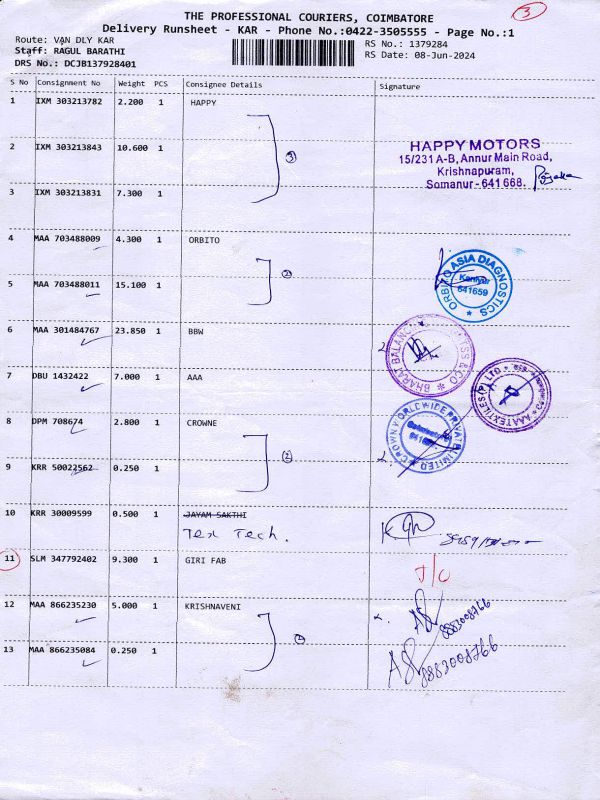 3
THE PROFESSIONAL COURIERS, COIMBATORE
Delivery Runsheet - KAR - Phone No.:0422-3505555 - Page No.:1
Route: VAN DLY KAR
RS No.: 1379284
Staff: RAGUL BARATHI
RS Date: 08-Jun-2024
DRS No.: DCJB137928401
S No Consignment No Weight PCS Consignee Details Signature
1 IXM 303213782 2.200 1 HAPPY
2 IXM 303213843 10.600 1
3
HAPPY MOTORS
15/231 A-B, Annur Main Road,
Krishnapuram,
Somanur - 641 668.
3 IXM 303213831 7.300 1
4 MAA 703488009 4.300 1 ORBITO
2
ORBITO ASIA DIAGNOSTICS
641659
5 MAA 703488011 15.100 1
6 MAA 301484767 23.850 1 BBW
BHARAT BALAN & CO
7 DBU 1432422 7.000 1 AAA
AAA TEXTILES (P) LTD
8 DPM 708674 2.800 1 CROWNE
2
CROWN WORLDWIDE PRIVATE LIMITED
9 KRR 50022562 0.250 1
10 KRR 30009599 0.500 1 JAYAM SAKTHI
Tex Tech.
11 SLM 347792402 9.300 1 GIRI FAB
12 MAA 866235230 5.000 1 KRISHNAVENI
8883008766
2
13 MAA 866235084 0.250 1
8883008766